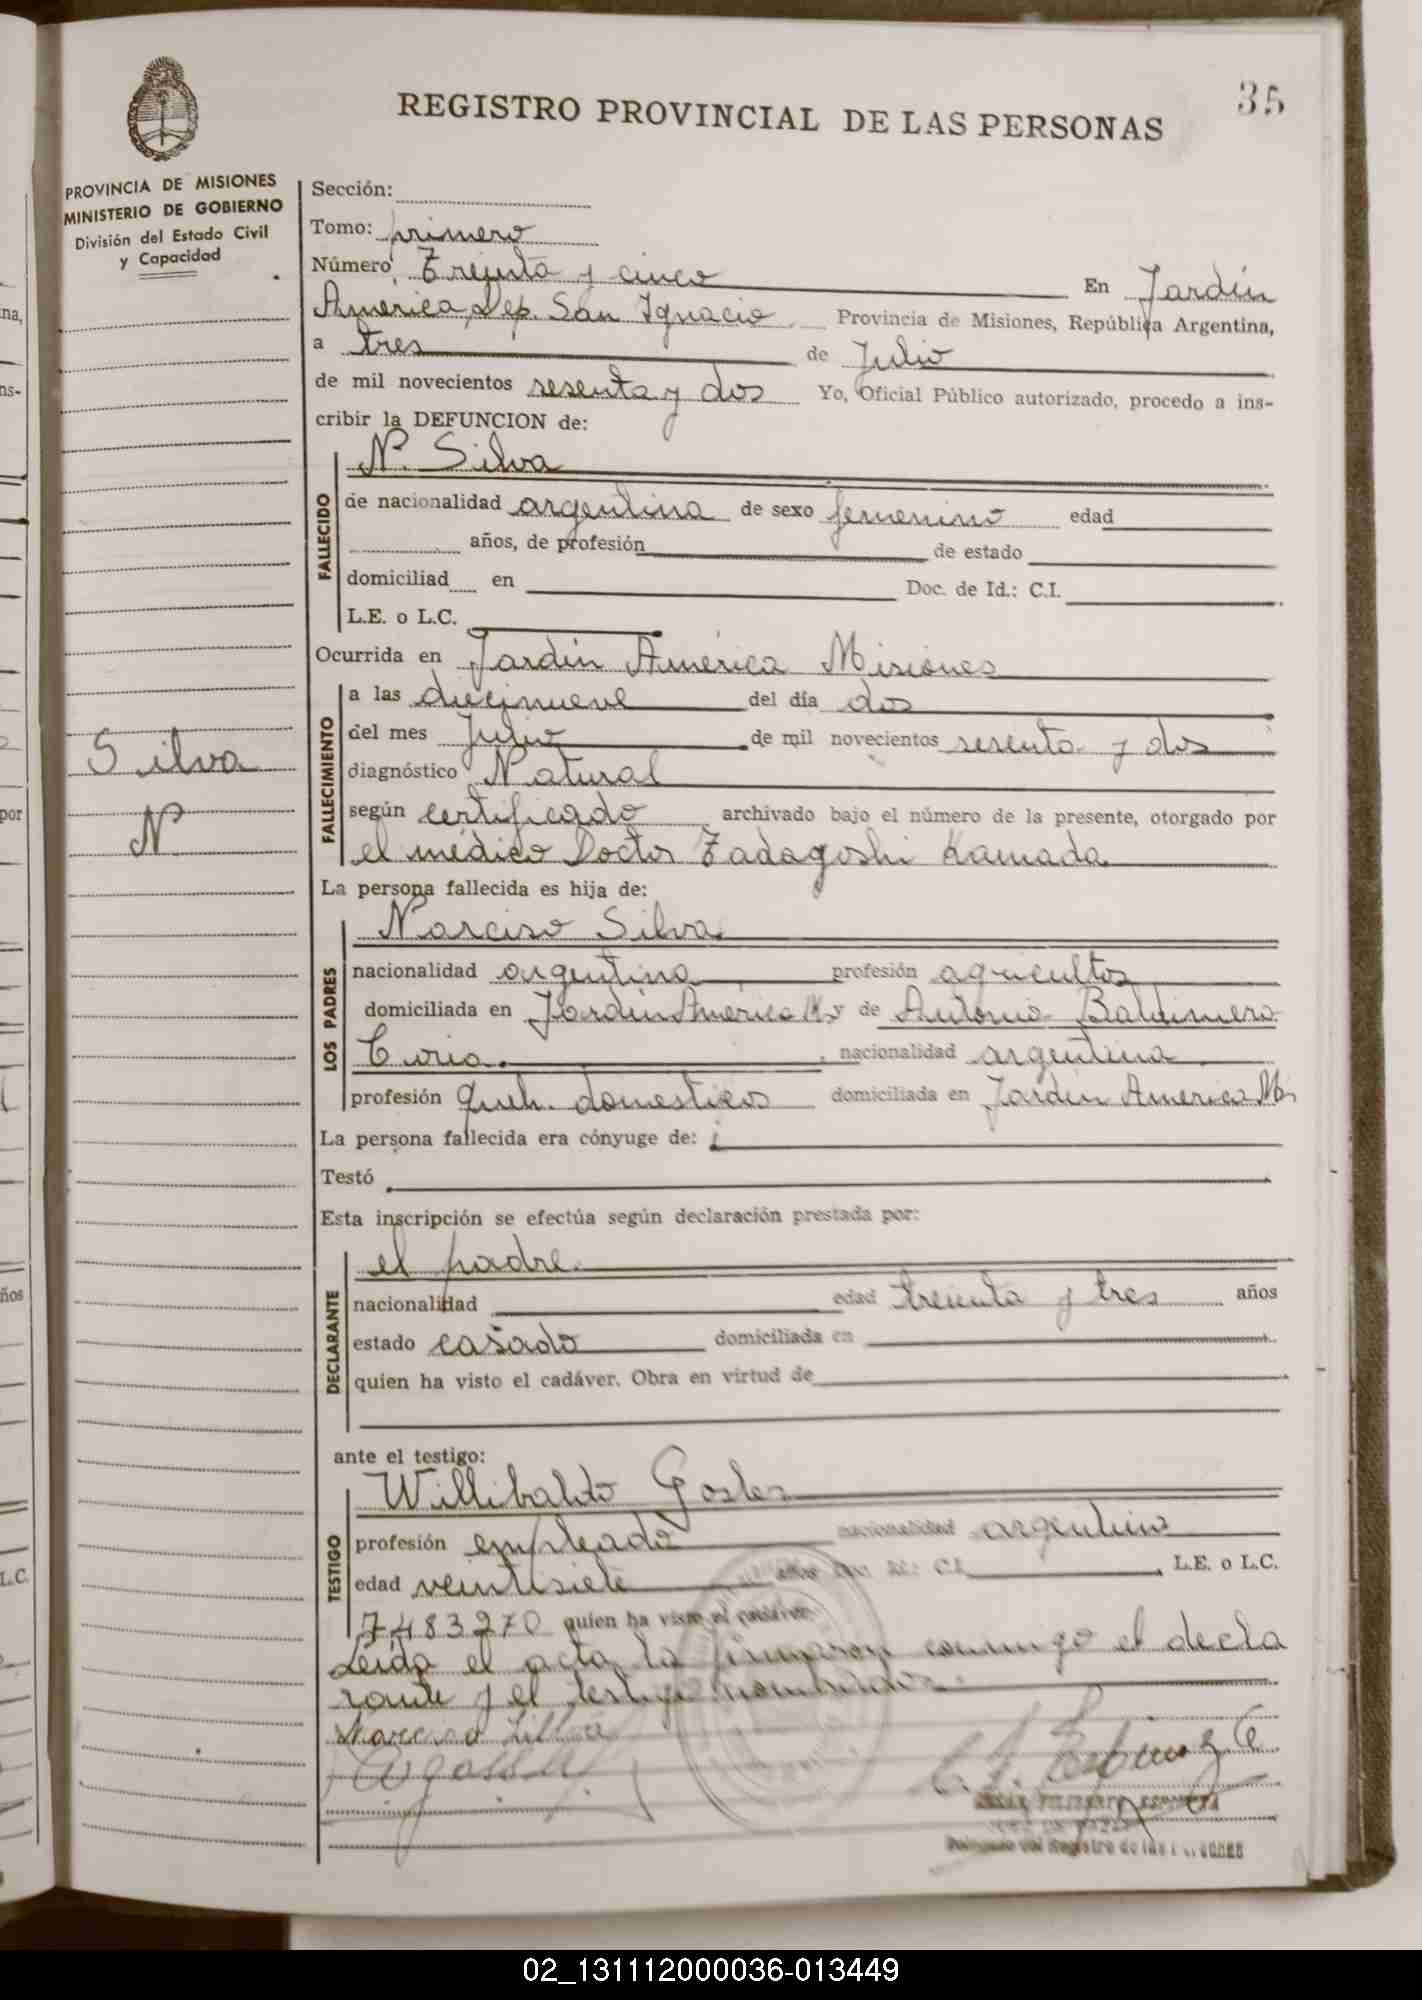 35
REGISTRO PROVINCIAL DE LAS PERSONAS
PROVINCIA DE MISIONES
MINISTERIO DE GOBIERNO
División del Estado Civil
y Capacidad
Sección:
Tomo: primero
Número Treinta y cinco En Jardín
America, Dep. San Ignacio Provincia de Misiones, República Argentina,
a tres de Julio
de mil novecientos sesenta y dos Yo, Oficial Público autorizado, procedo a ins-
cribir la DEFUNCION de:
N. Silva
FALLECIDO
de nacionalidad argentina de sexo femenino edad
años, de profesión de estado
domiciliad en Doc. de Id.: C.I.
L.E. o L.C.
Ocurrida en Jardín América Misiones
FALLECIMIENTO
a las diecinueve del día dos
del mes Julio de mil novecientos sesenta y dos
diagnóstico Natural
según certificado archivado bajo el número de la presente, otorgado por
el médico Doctor Tadagoshi Kamada
Silva
N
La persona fallecida es hija de:
Narciso Silva
LOS PADRES
nacionalidad argentina profesión agricultor
domiciliada en Jardín America M. y de Antonia Baldimera
Curia. nacionalidad argentina
profesión Queh. domesticos domiciliada en Jardin America Mis
La persona fallecida era cónyuge de:
Testó
Esta inscripción se efectúa según declaración prestada por:
el padre.
DECLARANTE
nacionalidad edad treinta y tres años
estado casado domiciliada en
quien ha visto el cadáver. Obra en virtud de
ante el testigo:
Willibaldo Gosler
TESTIGO
profesión empleado nacionalidad argentino
edad veintisiete años Doc. de Id.: C.I. L.E. o L.C.
7483270 quien ha visto el cadáver
Leida el acta la firmaron conmigo el decla
rante y el testigo nombrados.
Narciso Silva
Delegado del Registro de las Personas
02_131112000036-013449